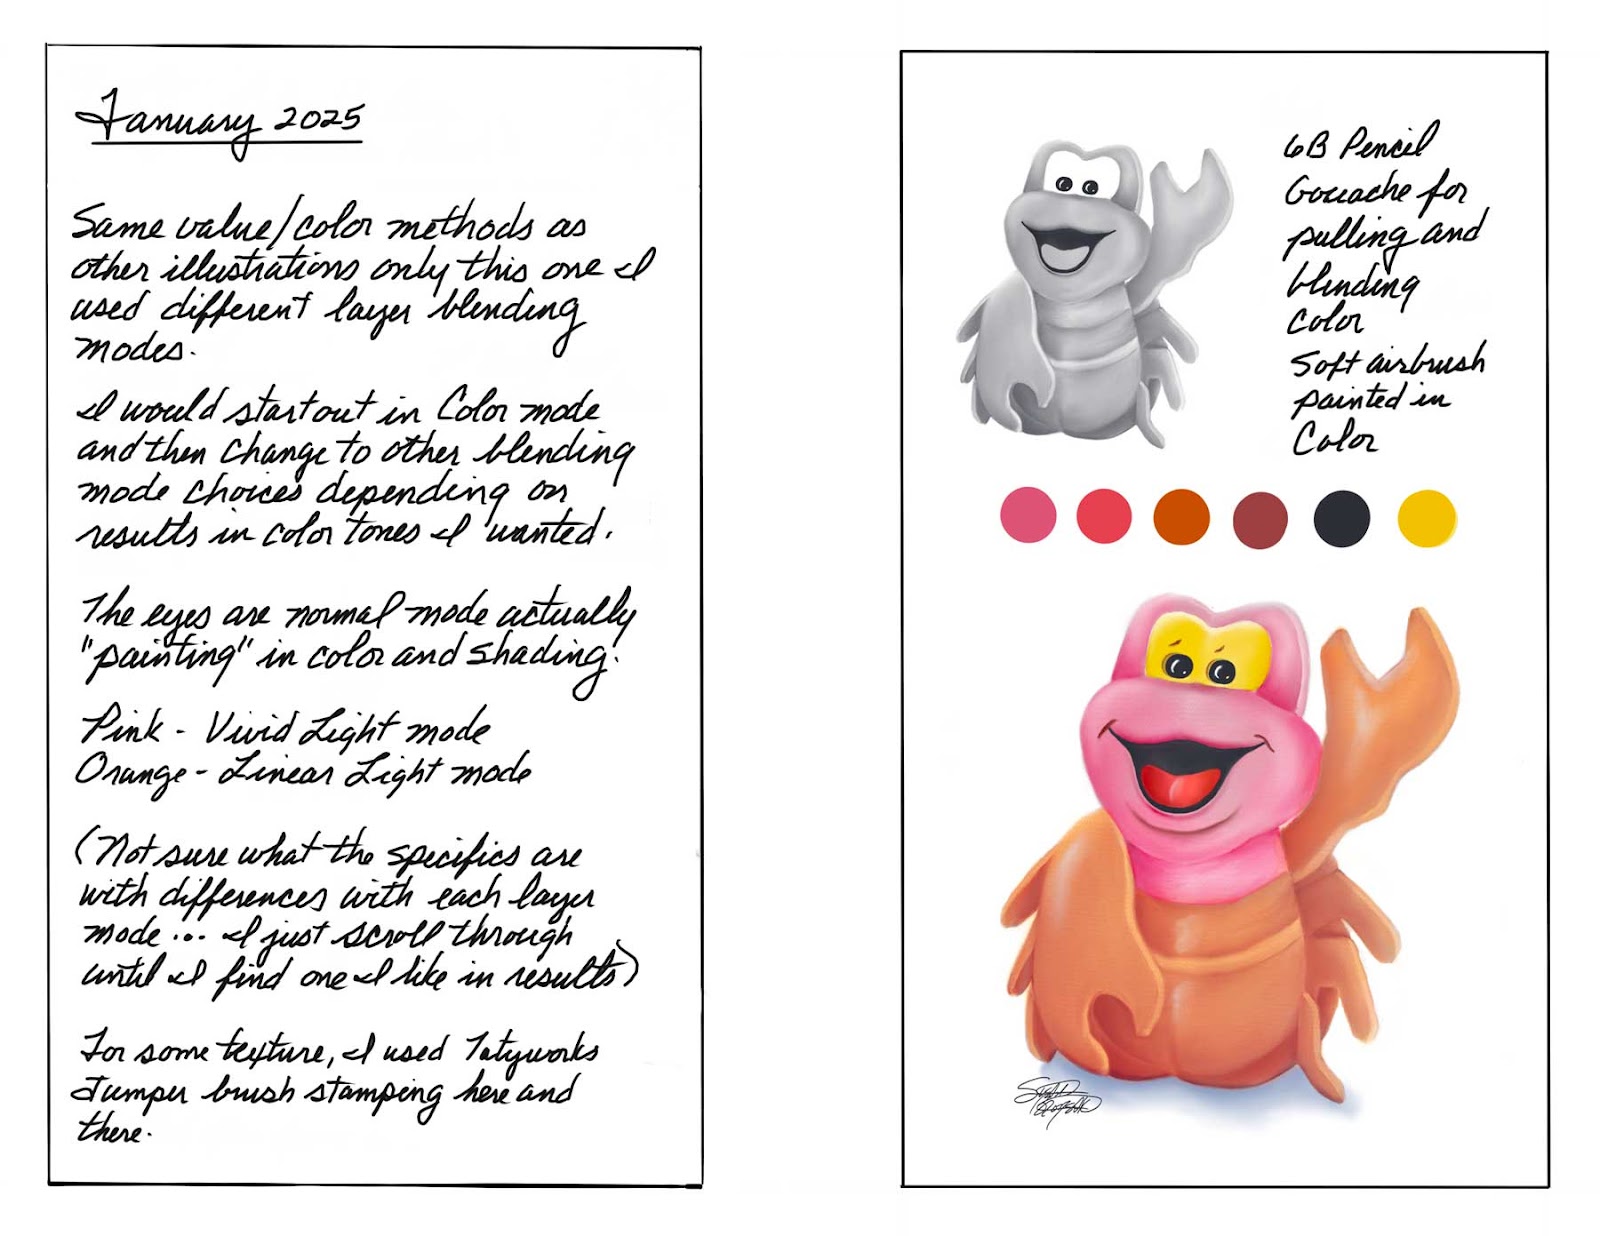 January 2025
Same value/color methods as
other illustrations only this one I
used different layer blending
modes.
I would start out in Color mode
and then change to other blending
mode choices depending on
results in color tones I wanted.
The eyes are normal mode actually
"painting" in color and shading.
Pink - Vivid Light mode
Orange - Linear Light mode
(Not sure what the specifics are
with differences with each layer
mode ... I just scroll through
until I find one I like in results)
For some texture, I used Tatyworks
Jumper brush stamping here and
there.
6B Pencil
Gouache for
pulling and
blending
color
Soft airbrush
painted in
Color